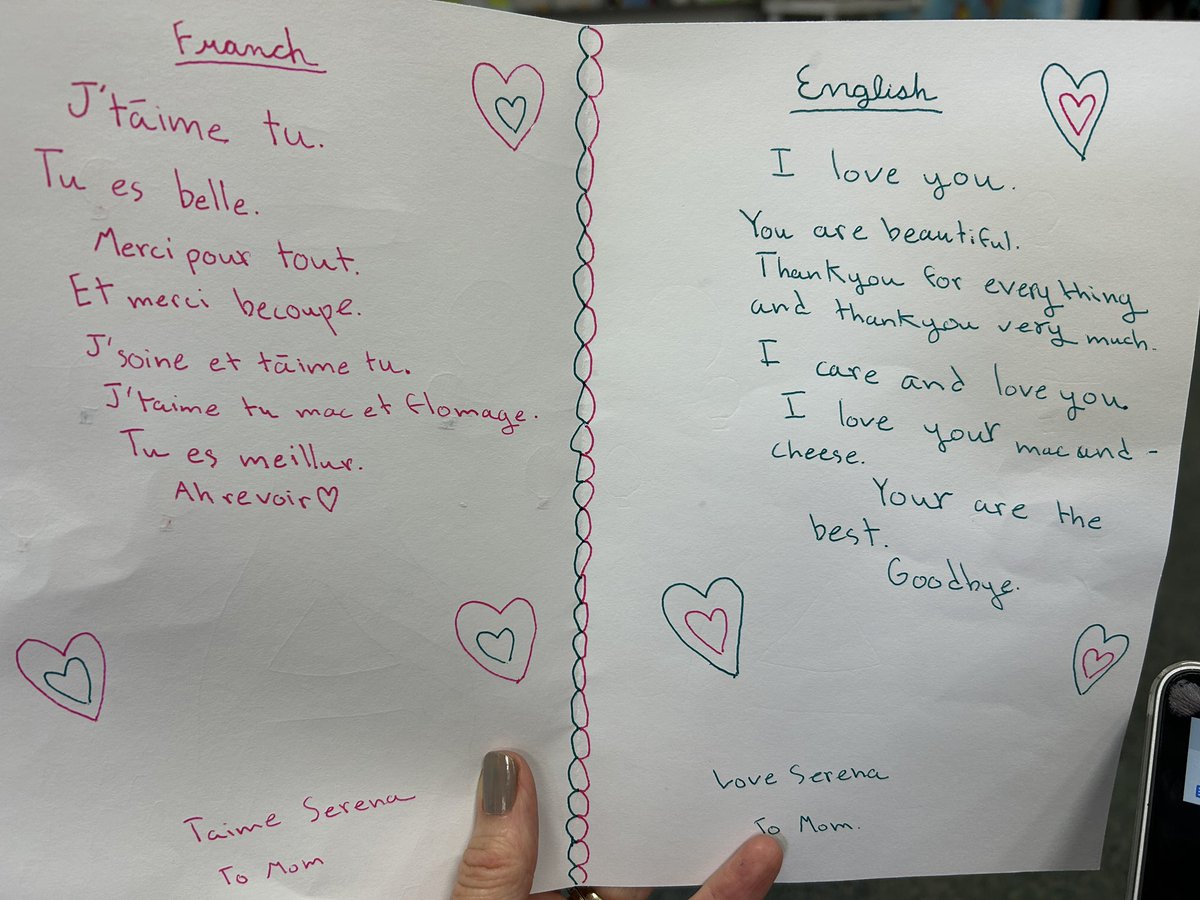 Franch
J'tāime tu.
Tu es belle.
Merci pour tout.
Et merci becoupe.
J'soine et tāime tu.
J'taime tu mac et flomage.
Tu es meillur.
Ah revoir♡
Taime Serena
To Mom
English
I love you.
You are beautiful.
Thankyou for everything
and thankyou very much.
I care and love you.
I love your mac and -
cheese.
Your are the
best.
Goodbye.
Love Serena
To Mom.